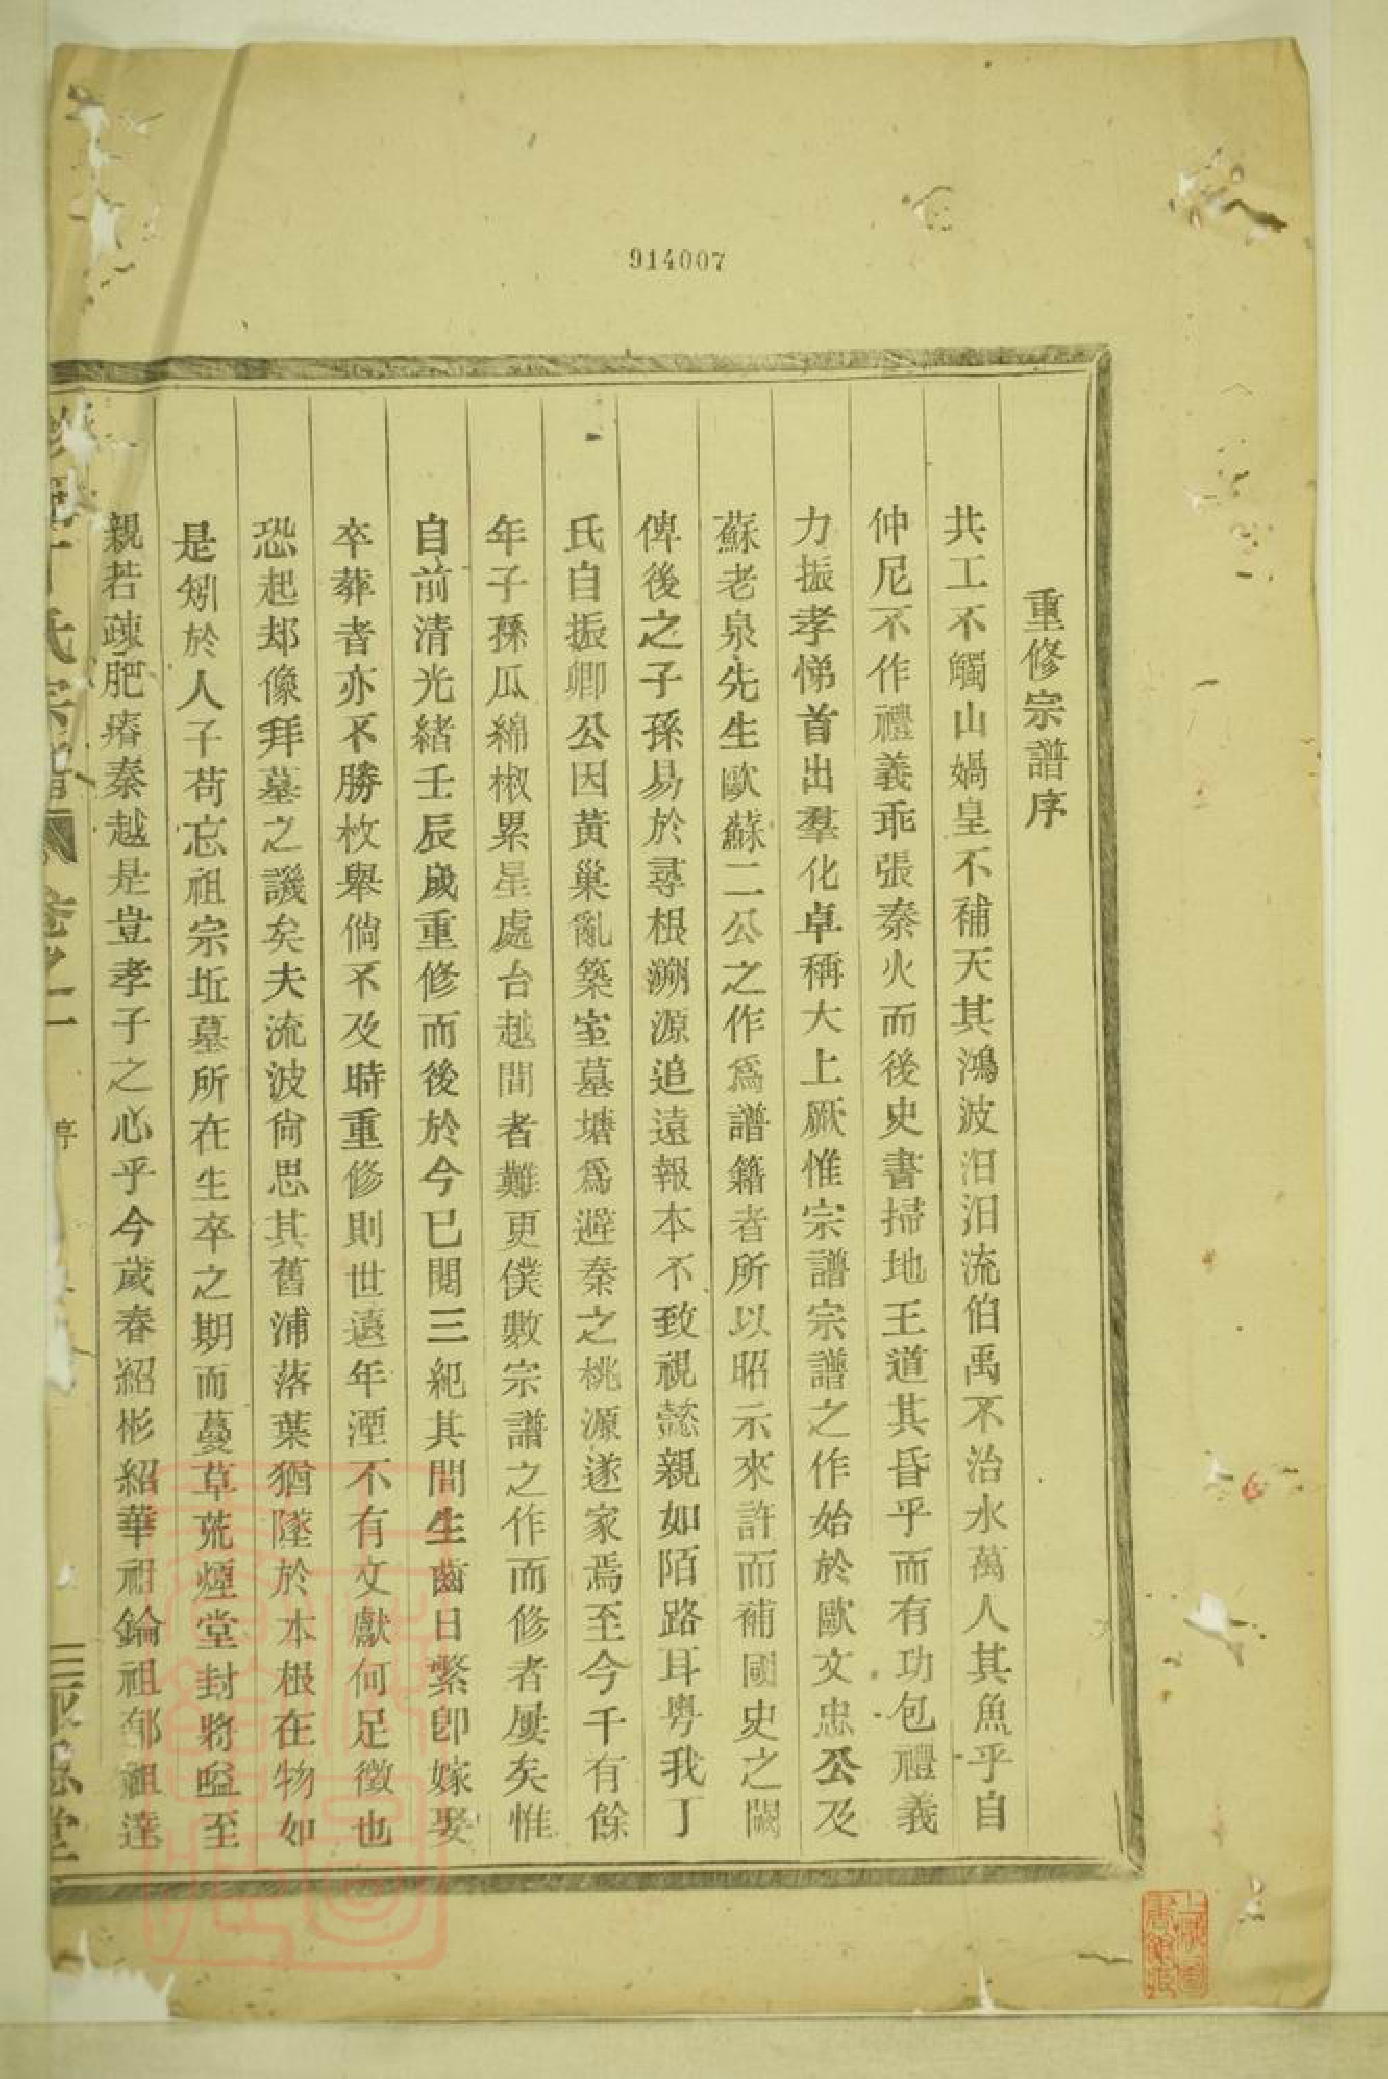 914007
重修宗譜序
共工不觸山媧皇不補天其鴻波汨汨流伯禹不治水萬人其魚乎自
仲尼不作禮義乖張秦火而後史書掃地王道其昏乎而有功包禮義
力振孝悌首出羣化卓稱大上厥惟宗譜宗譜之作始於歐文忠公及
蘇老泉先生歐蘇二公之作爲譜籍者所以昭示來許而補國史之闕
俾後之子孫易於尋根溯源追遠報本不致視懿親如陌路耳粤我丁
氏自振卿公因黃巢亂築室墓塘爲避秦之桃源遂家焉至今千有餘
年子孫瓜綿椒累星處台越間者難更僕數宗譜之作而修者屢矣惟
自前清光緒壬辰歲重修而後於今已閱三紀其間生齒日繁卽嫁娶
卒葬者亦不勝枚舉倘不及時重修則世遠年湮不有文獻何足徵也
恐起刼像拜墓之譏矣夫流波尙思其舊浦落葉猶墜於本根在物如
是矧於人子苟忘祖宗坵墓所在生卒之期而蔓草荒煙堂封將盬至
親若疎肥瘠秦越是豈孝子之心乎今歲春紹彬紹華祖錀祖郁祖達
氏宗譜 卷之一 序